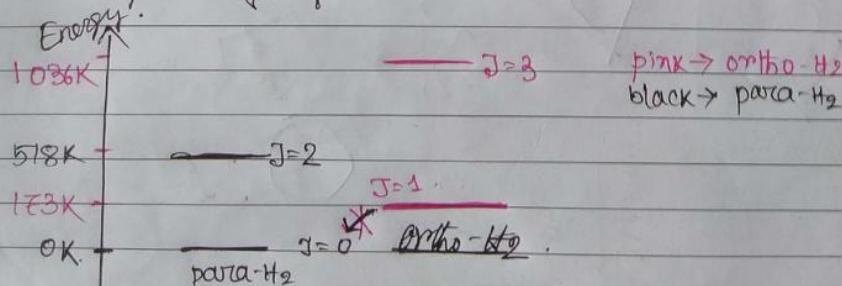 Energy.
1036K J=3 pink → ortho-H2
black → para-H2
518K J=2
J=1.
173K
0K. J=0 Ortho-H2.
para-H2